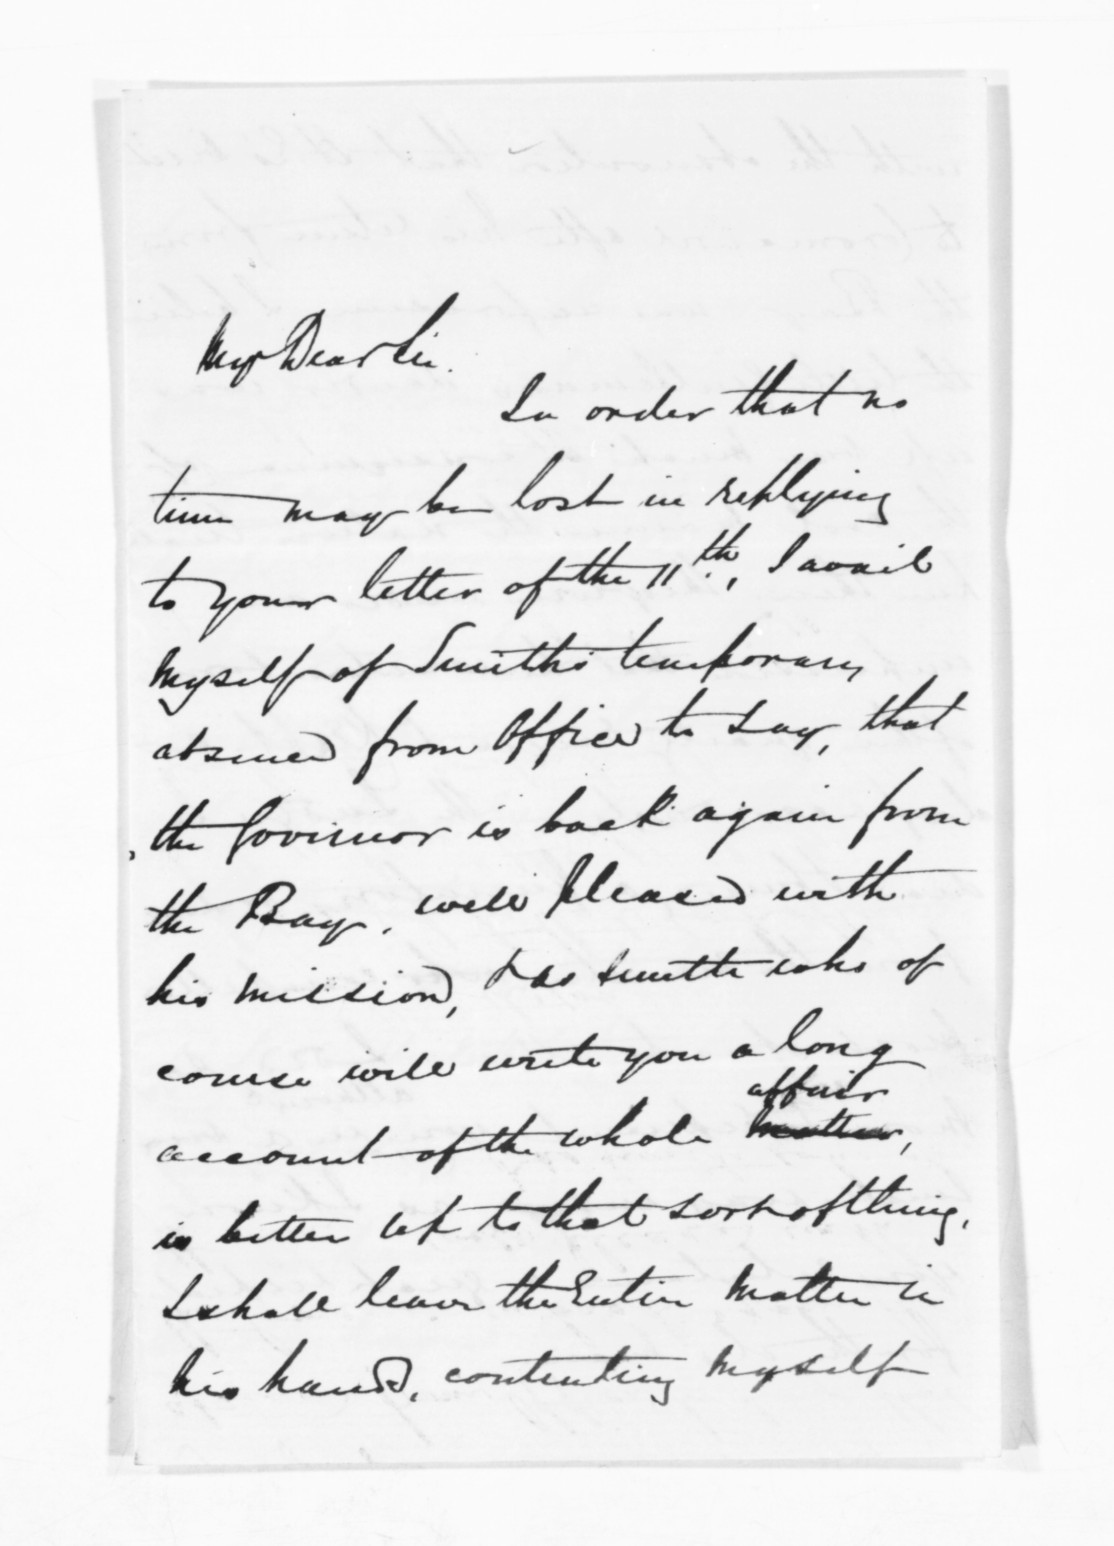 My Dear Sir.
In order that no
time may be lost in replying
to your letter of the 11th, I avail
myself of Smith's temporary
absence from Office to say, that
the Governor is back again from
the Bay, well pleased with
his mission, & as Smith who of
course will write you a long
affair
account of the whole matter,
is better up to that sort of thing,
I shall leave the Entire Matter in
his hands, contenting myself